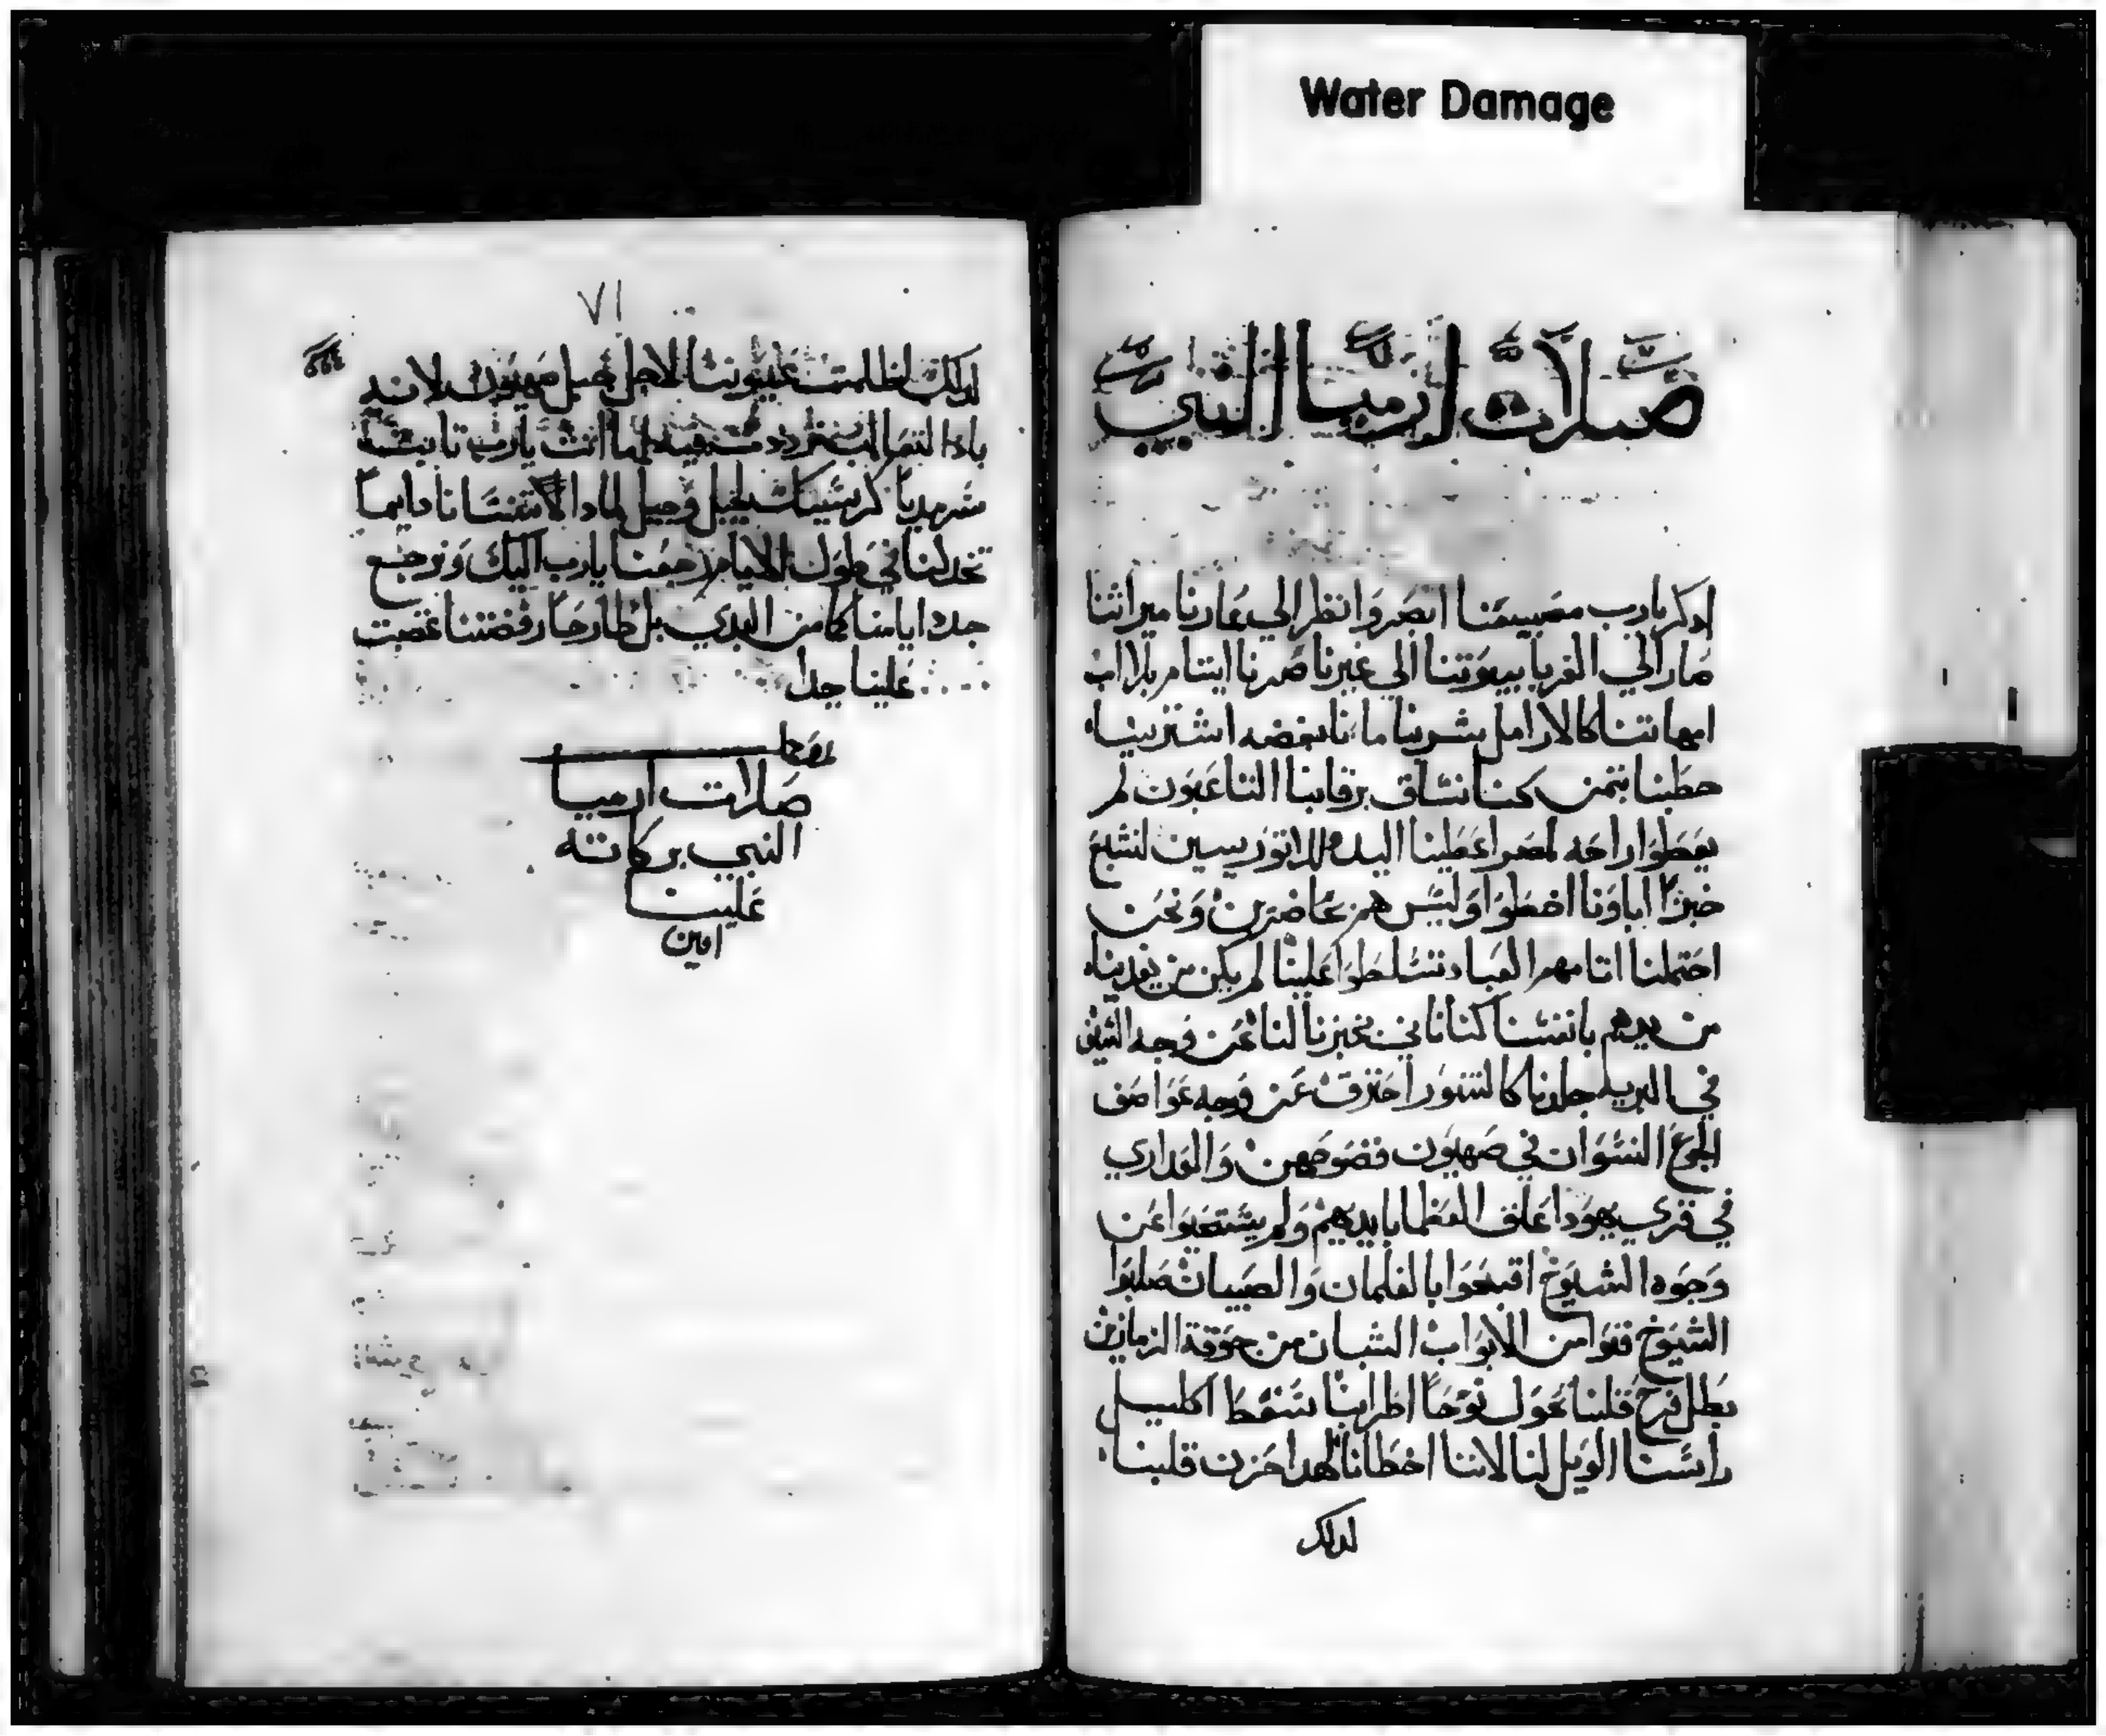 Water Damage
صلاة ارميا النبي
ادكر يارب مصيبتنا ابصر وانظر الي عارنا ميراثنا
صار الي الغربا بيوتنا الي غيرنا صرنا ايتام بلا اب
امهاتنا كالارامل شربنا مانا بفضه اشترينا
حطبنا بتمن كنا نساق برقابنا التناعبون لم
يعطوا راحه لمصر اعطينا اليد وللاتوريين لنشبع
خبزا اباونا اخطوا وليس هم حاضرين ونحن
احتملنا اتامهم العباد تسلطوا علينا لم يكن من يفدينا
من يدهم بانفسنا كنا ناتي بخبزنا لنا عن وجه السيف
في البريه جلدنا كالتنور احترق عن وجه عواصف
الجوع النسوان في صهيون فضوحهن والعداري
في قري يهودا علق العظما بايديهم ولم يستحيوا عن
وجوه الشيوخ اقبحوا بالغلمان والصبيان صلبوا
الشيوخ فنوا من الابواب الشبان من جوقة الزمازين
بطل فرح قلبنا تحول نوحا اطرابنا سقط اكليل
راسنا الويل لنا لاننا اخطانا لهدا حزن قلبنا
لدلك
٧١
لدلك اظلمت عيوننا لاجل جبل صهيون لانه
باد التعالب تردد فيه اما انت يارب تابت
سرمديا كرسيك لجيل وجيل لمادا لا تنسانا دايما
تخدلنا في طول الايام ارجعنا يارب اليك ونرجع
جدد ايامنا كما من البدي بل طارحا رفضتنا غضبت
علينا جدا
صلاة ارميا
النبي بركاته
علينا
امين